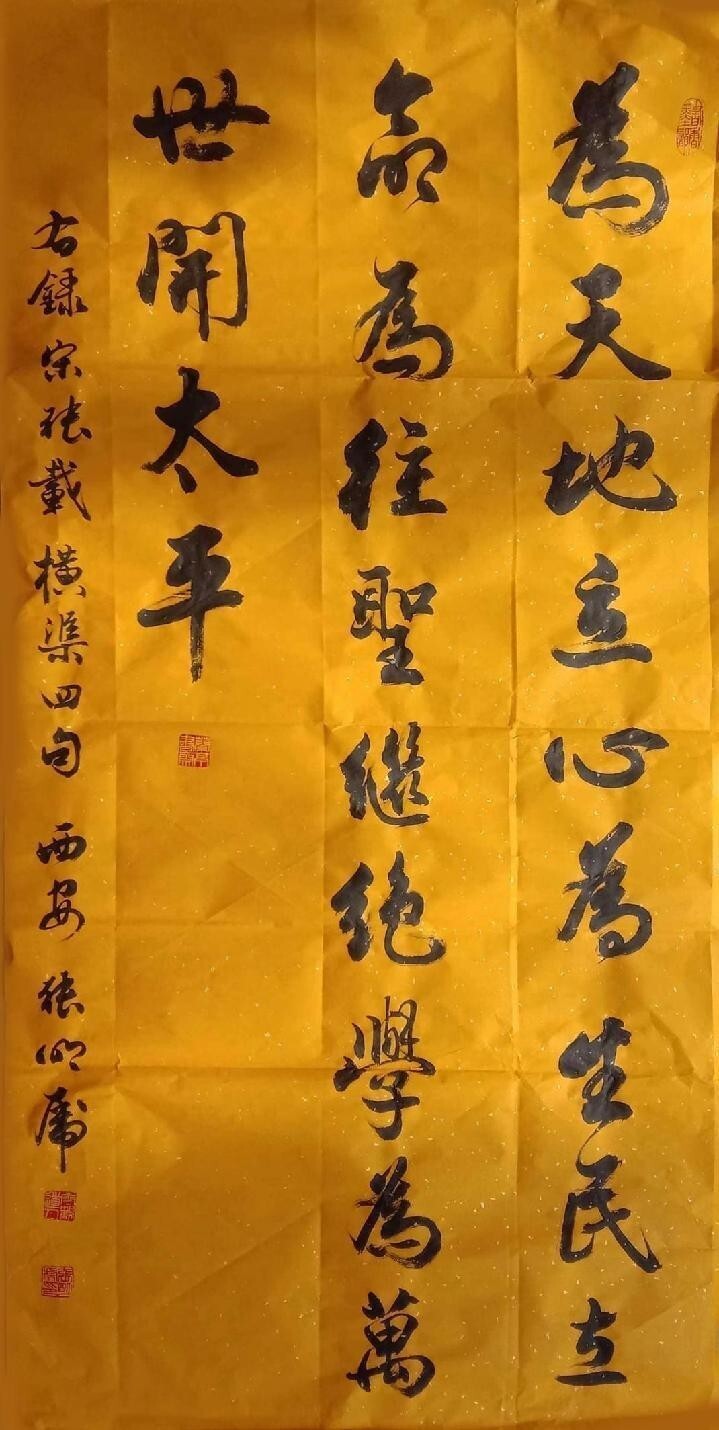 為天地立心為生民立
命為往聖繼絕學為萬
世開太平
右録宋張載橫渠四句 西安 張明虎